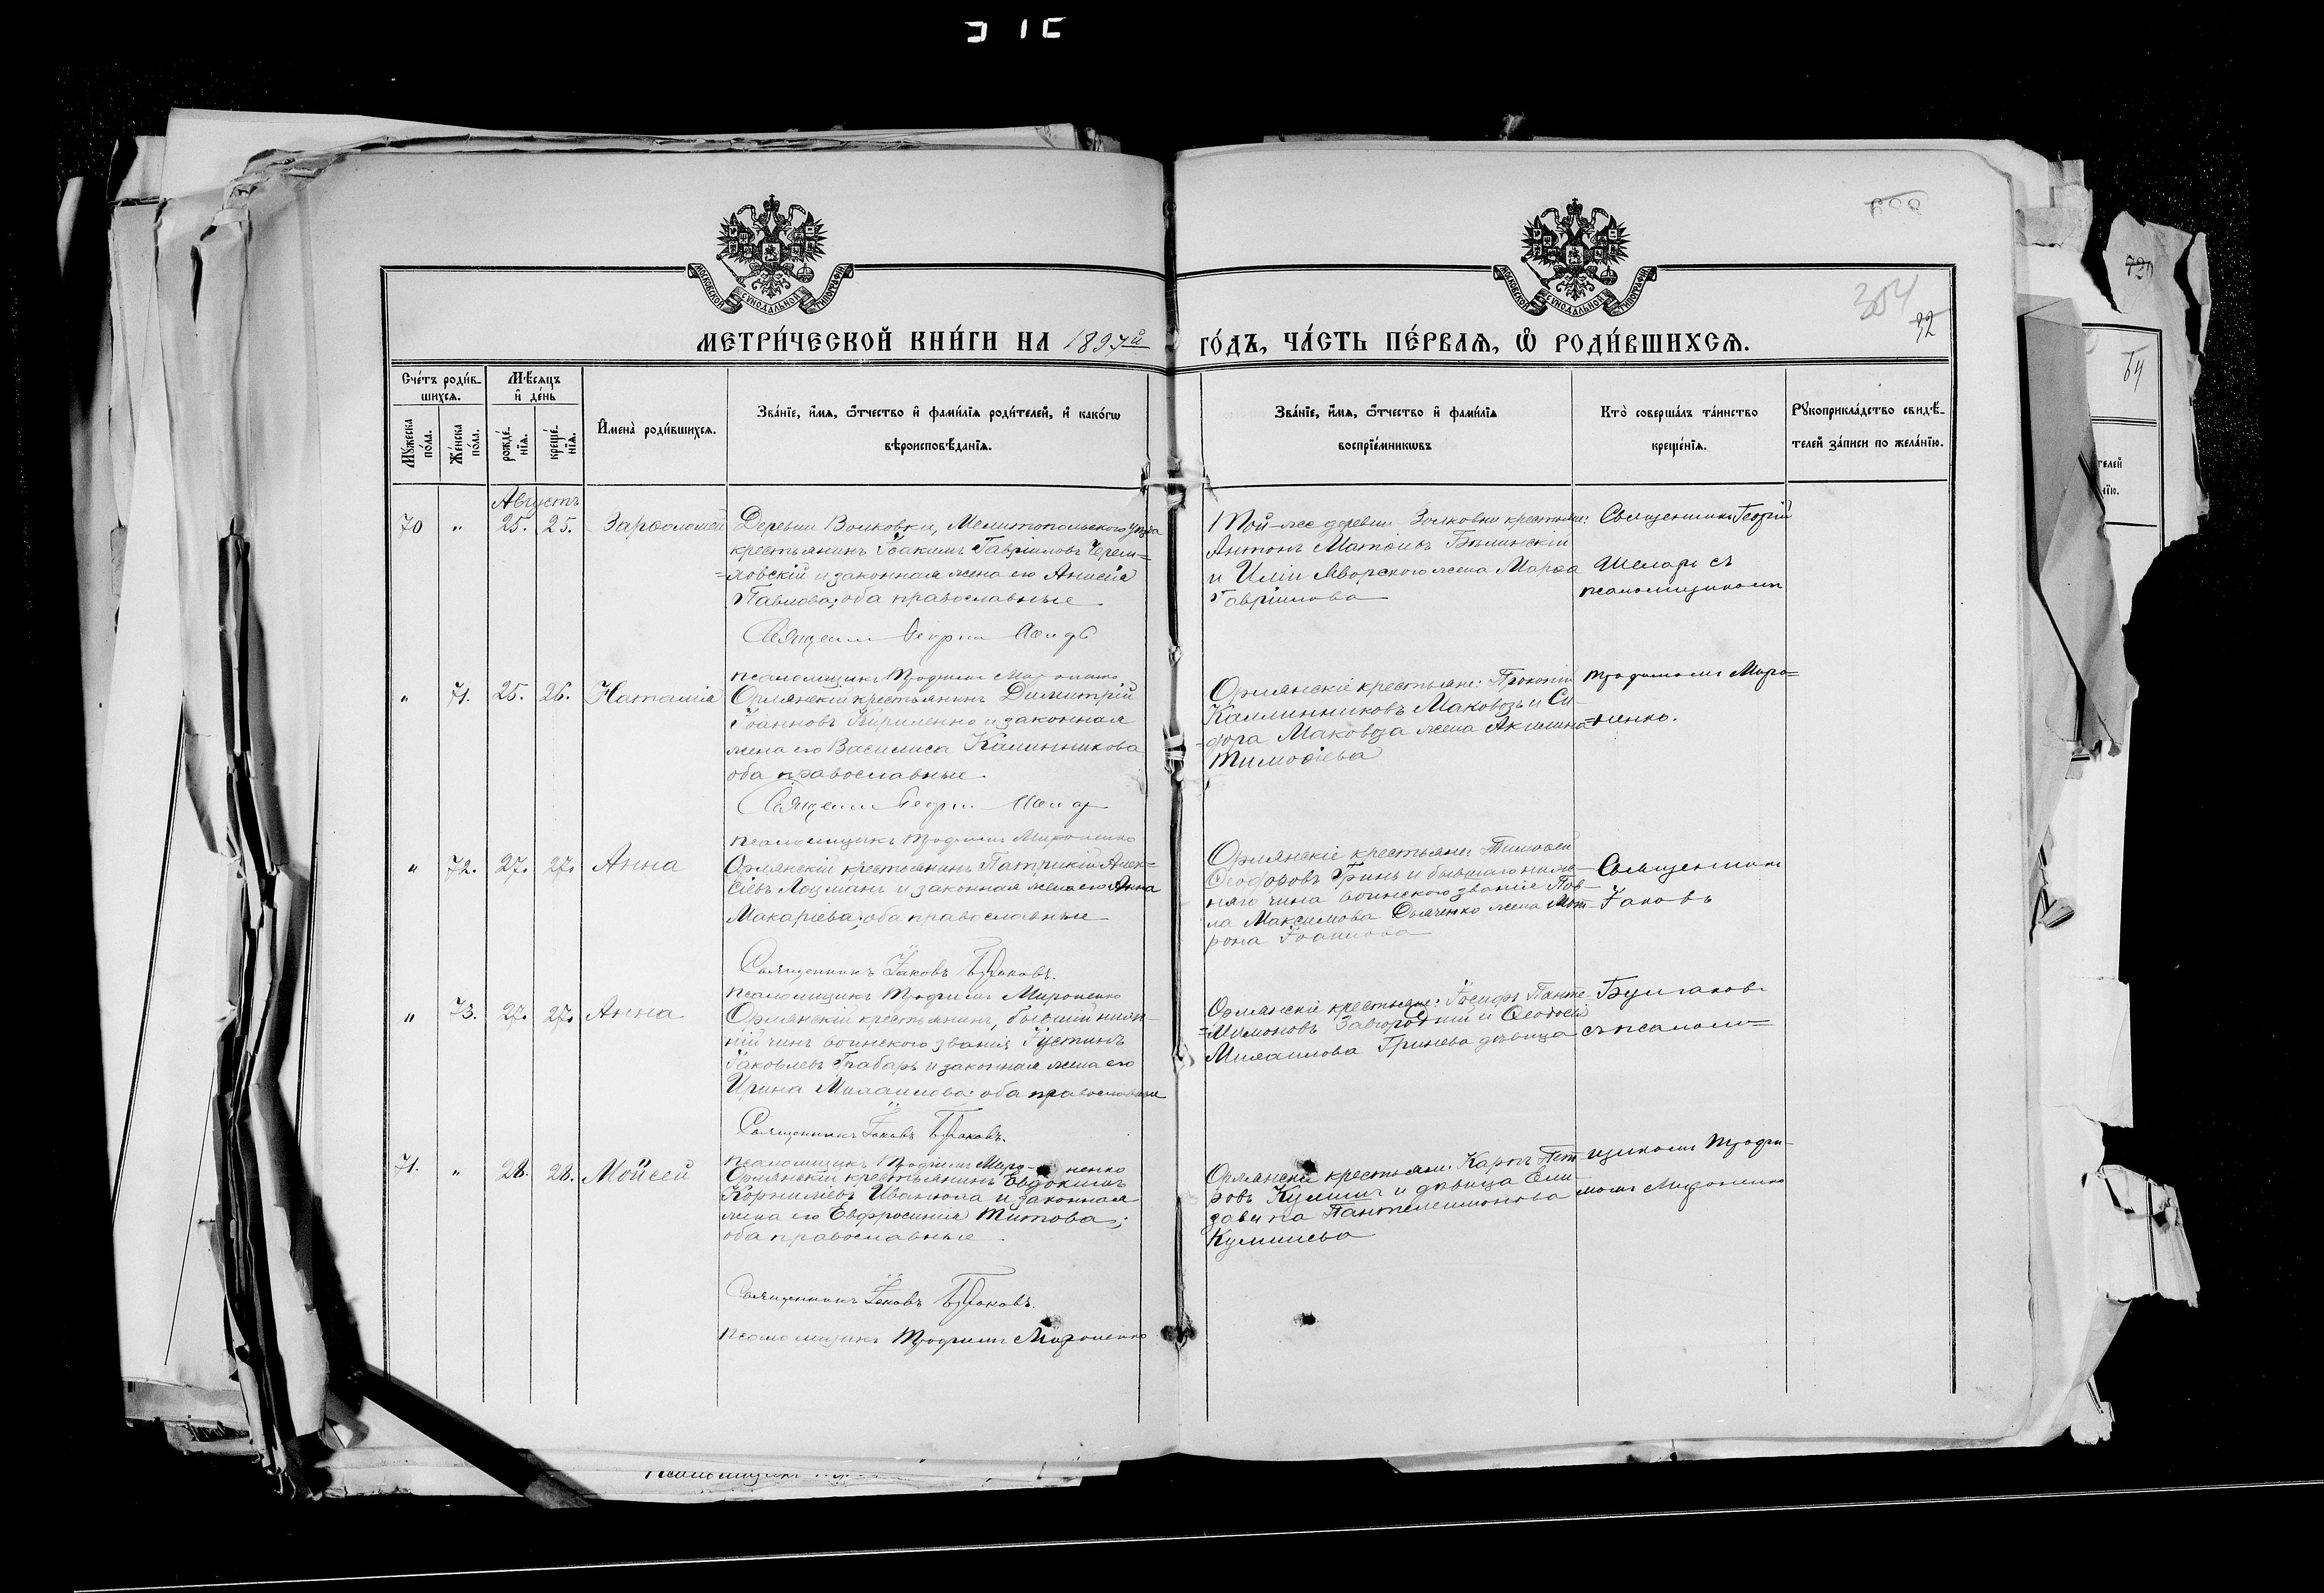 МЕТРИ́ЧЕСКОЙ КНИ́ГИ НА 1897й ГО́ДЪ, ЧА́СТЬ ПЕ́РВАЯ, Ѡ РОДИ́ВШИХСЯ.
304
32
Сче́тъ роди́в-
шихся.
Мѣ́сяцъ
и҆ де́нь
Му́жеска
по́ла.
Же́нска
по́ла.
рожде́-
нія.
креще́-
нія.
И҆мена̀ роди́вшихся.
Зва́нїе, и҆́мя, ѻ҆́тчество и҆ фами́лїя роди́телей, и҆ како́гѡ
вѣроисповѣ́данїя.
Зва́нїе, и҆́мя, ѻ҆́тчество и҆ фами́лїя
воспрїе́мникѡвъ
Кто̀ соверша́лъ та́инство
креще́нїя.
Рꙋкоприкла́дство свидѣ́-
телей за́писи по жела́нїю.
Августъ
70 " 25. 25. Варѳоломей
Деревни Волковки, Мелитопольскаго уѣзда
крестьянинъ Іоакимъ Гавріиловъ Черем-
=ховскій и законная жена его Анисія
Павлова; оба православные
Священни Георгій
псаломщикъ Трофимъ Мироненко
Той-же деревни Волковки крестьяне:
Антонъ Матѳіевъ Бѣлинскій
и Иліи Яворского жена Марѳа
Гавріилова
Священникъ Георгій
Шеларь съ
псаломщикомъ
" 71. 25. 26. Наталія
Орлянскій крестьянинъ Димитрій
Іоанновъ Кириленко и законная
жена его Василиса Калинникова
оба православные.
Священни Георгій
псаломщикъ Трофимъ Мироненко
Орлянскіе крестьяне: Прокопій
Каллинниковъ Маковозъ и Си-
=дора Маковоза жена Акилина
Тимоѳіева
Трофимомъ Миро=
=ненко.
" 72. 27. 27. Анна
Орлянскій крестьянинъ Патрикій Алек-
сіевъ Лоцманъ и законная жена его Анна
Макаріева; оба православные
Священникъ Іаковъ Булгаковъ.
псаломщикъ Трофимъ Мироненко
Орлянскіе крестьяне: Тимоѳей
Ѳеодоровъ Гринь и бывшаго ниж-
няго чина воинского званіе Пав-
ла Максимова Дьяченко жена Мат-
рона Іоаннова
Священникъ
Іаковъ
" 73. 27. 27. Анна
Орлянскій крестьянинъ, бывшій ниж-
ній чинъ воинского званія Іустинъ
Іаковлевъ Грабарь и законная жена его
Ирина Михаилова: оба православные
Священникъ Іаковъ Булгаковъ.
псаломщикъ Трофимъ Миро- ненко
Орлянскіе крестьяне: Іосифъ Панте-
=лимоновъ Завгородній и Ѳеодосія
Михаилова Гринева дѣвица
Булгаковъ
съ псалом=
71. " 28. 28. Мойсей
Орлянскій крестьянинъ Евдокимъ
Корниліевъ Иванюта и законная
жена его Евфросинія Титова;
оба православные
Священникъ Іаковъ Булгаковъ.
псаломщикъ Трофимъ Мироненко
Орлянскіе крестьяне: Карпъ Пет-
ровъ Кулишъ и дѣвица Ели-
завета Пантелеимонова
Кулишева
щикомъ Трофи-
момъ Мироненко